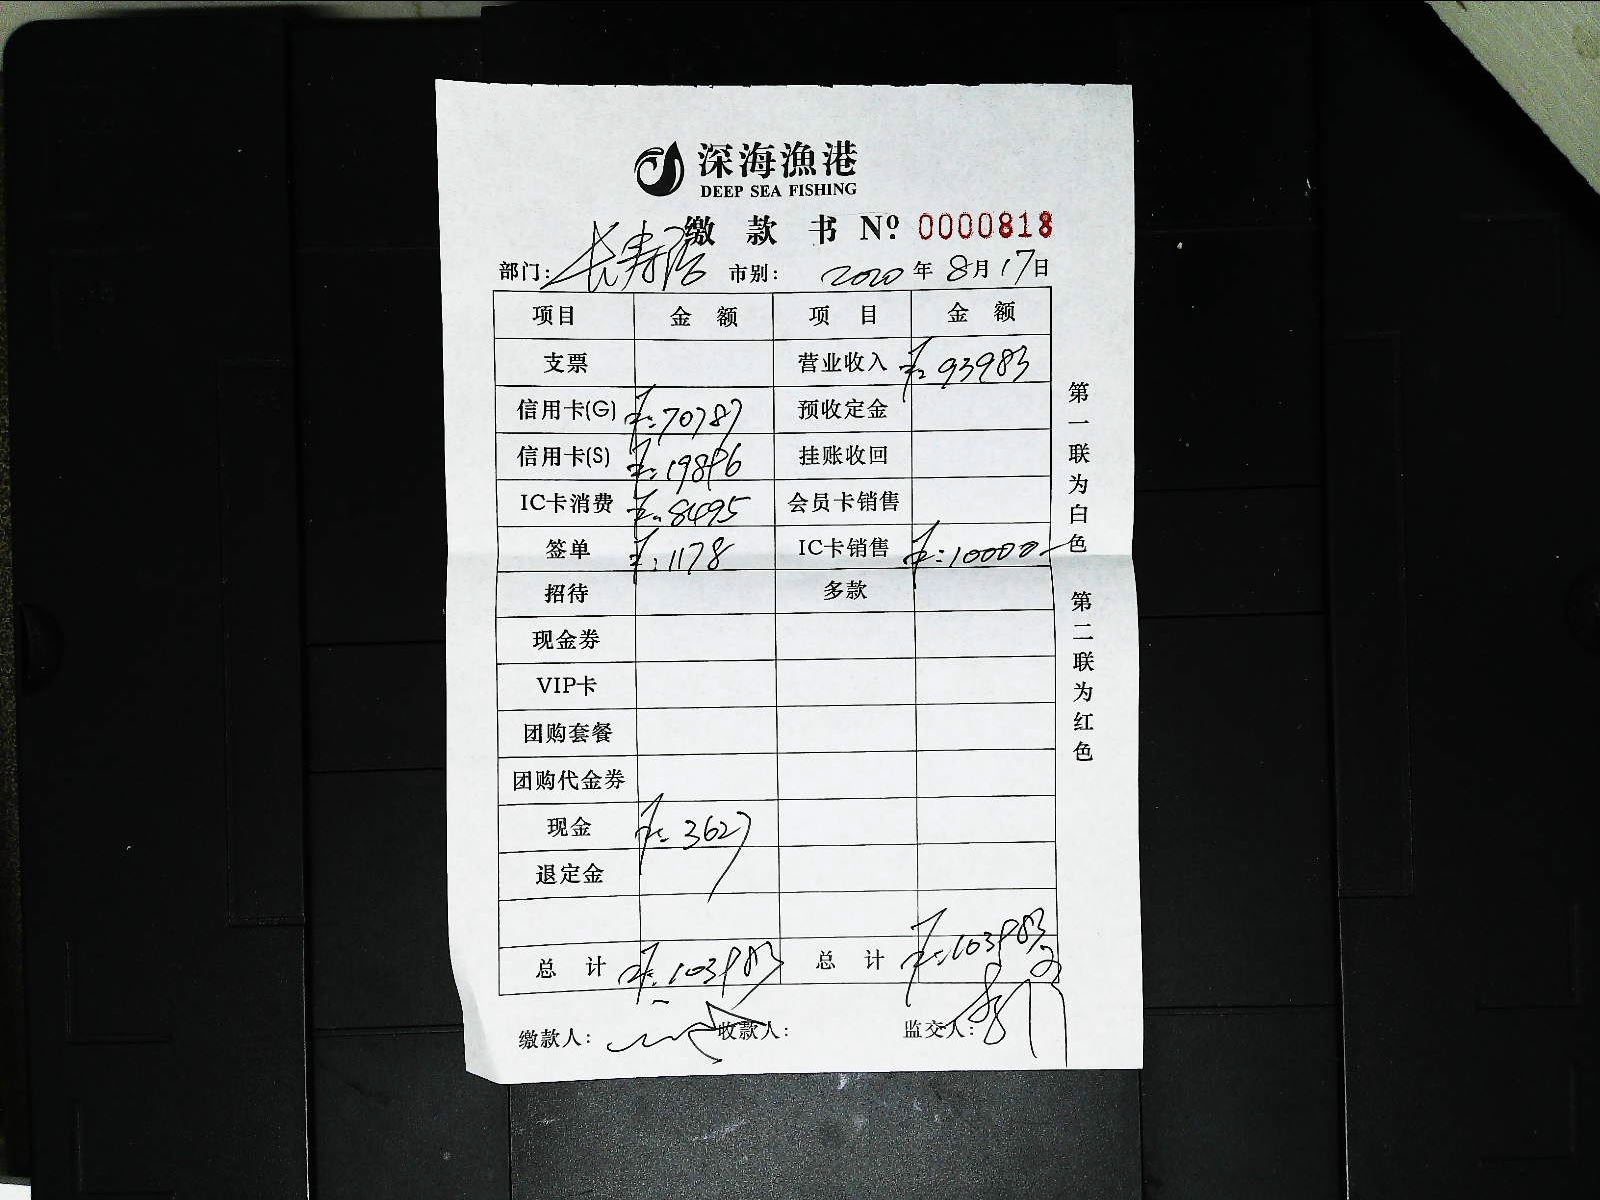 深海漁港
DEEP SEA FISHING
缴款书 Nº 0000818
部门: 长寿路 市别: 2020年8月17日
项目 金额 项目 金额
支票 营业收入 ¥:93983
信用卡(G) ¥:70787 预收定金
信用卡(S) ¥:19896 挂账收回
IC卡消费 ¥:8495 会员卡销售
签单 ¥:1178 IC卡销售 ¥:10000
招待 多款
现金券
VIP卡
团购套餐
团购代金券
现金 ¥:3627
退定金
总计 ¥:103983 总计 ¥:103983
缴款人: 收款人: 监交人:
第一联为白色 第二联为红色